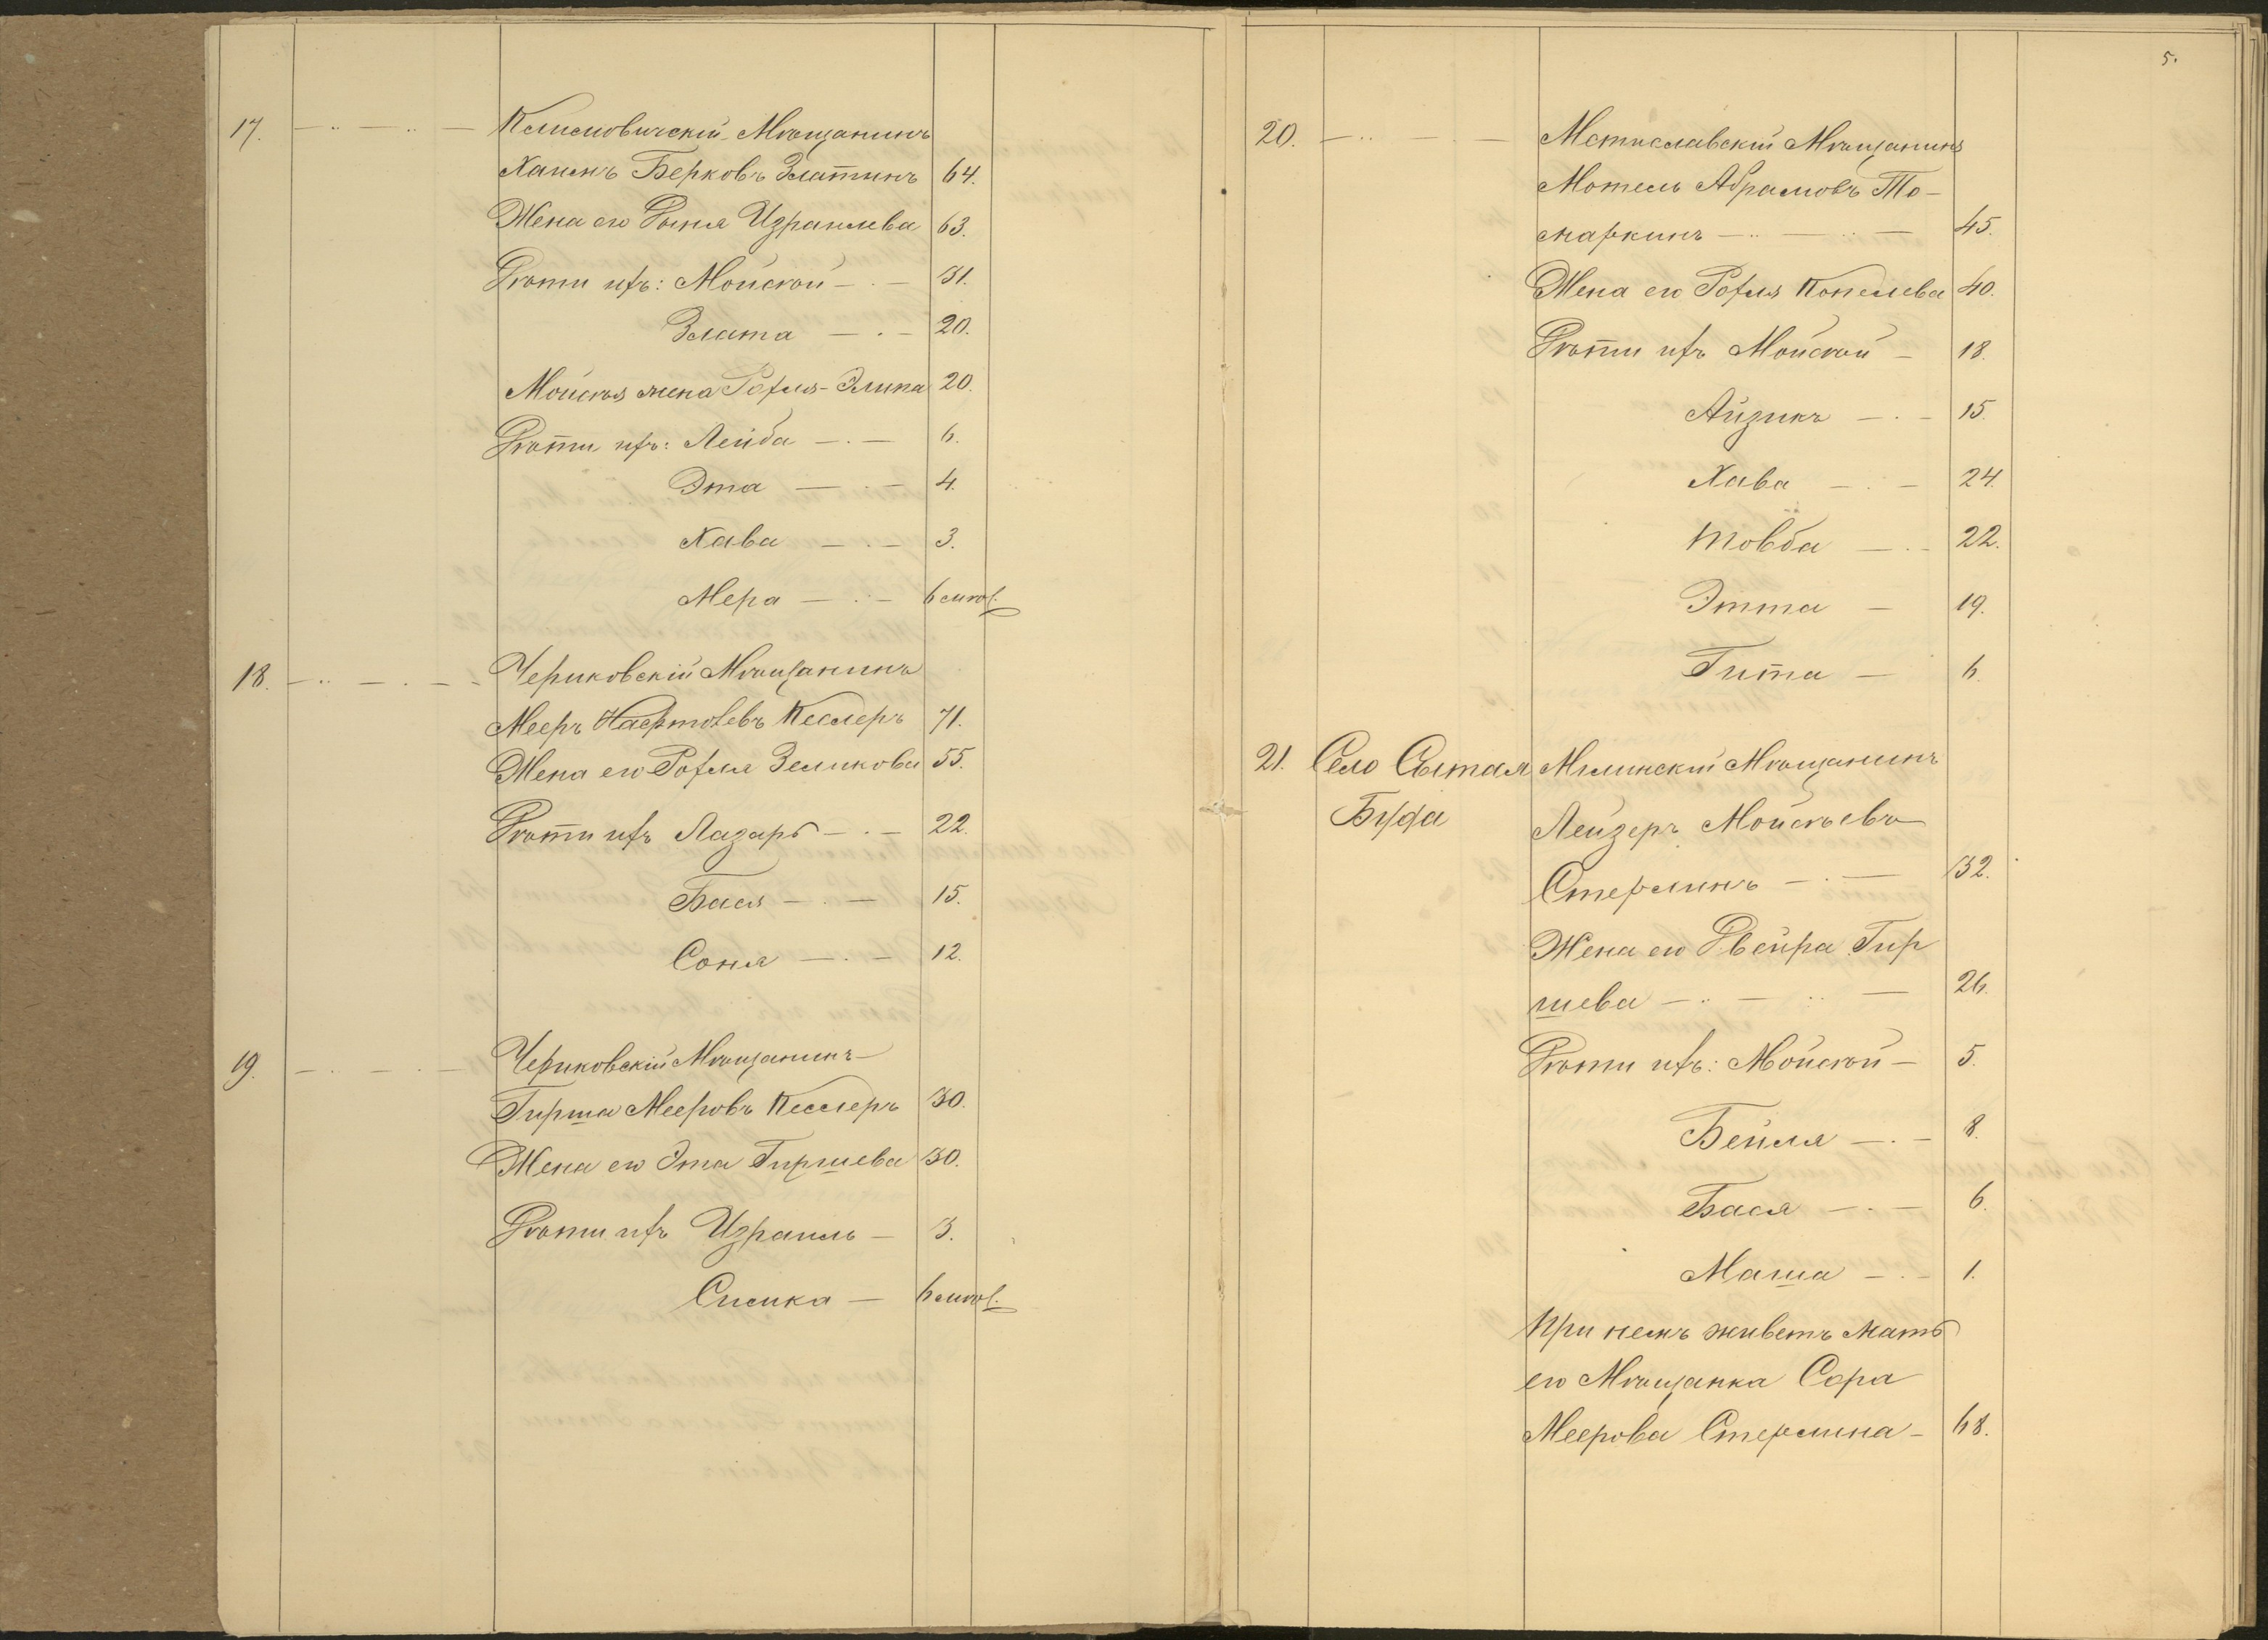 17. Климовичскій Мѣщанинъ
Хаимъ Берковъ Златинъ 64.
Жена его Рыня Израилева 63.
Дѣти ихъ: Мойсѣй 31.
Злата 20.
Мойсѣя жена Рохля-Элька 20.
Дѣти ихъ: Лейба 6.
Эта 4.
Хава 3.
Мера 6 мѣс.
18. Чериковскій Мѣщанинъ
Мееръ Кеслеръ 71.
Жена его Рохля Зеликова 55.
Дѣти ихъ Лазарь 22.
Бася 15.
Соня 12.
19. Чериковскій Мѣщанинъ
Гирша Мееровъ Кесслеръ 30.
Жена его Эта Гиршева 30.
Дѣти ихъ Израиль 3.
Симка 6 мѣс.
5.
20. Мстиславскій Мѣщанинъ
Мотель Абрамовъ То-
маркинъ 45.
Жена его Рохля Копелева 40.
Дѣти ихъ Мойсѣй 18.
Айзикъ 15.
Хава 24.
Товба 22.
Этта 19.
Гита 6.
21. Село Сытая Мглинскій Мѣщанинъ
Буда Лейзеръ Мойсѣевъ
Стерлинъ 32.
Жена его Двейра Гир
шева 26.
Дѣти ихъ: Мойсѣй 5.
Бейля 8.
Бася 6.
Маша 1.
При немъ живетъ мать
его Мѣщанка Сора
Меерова Стерлина 68.